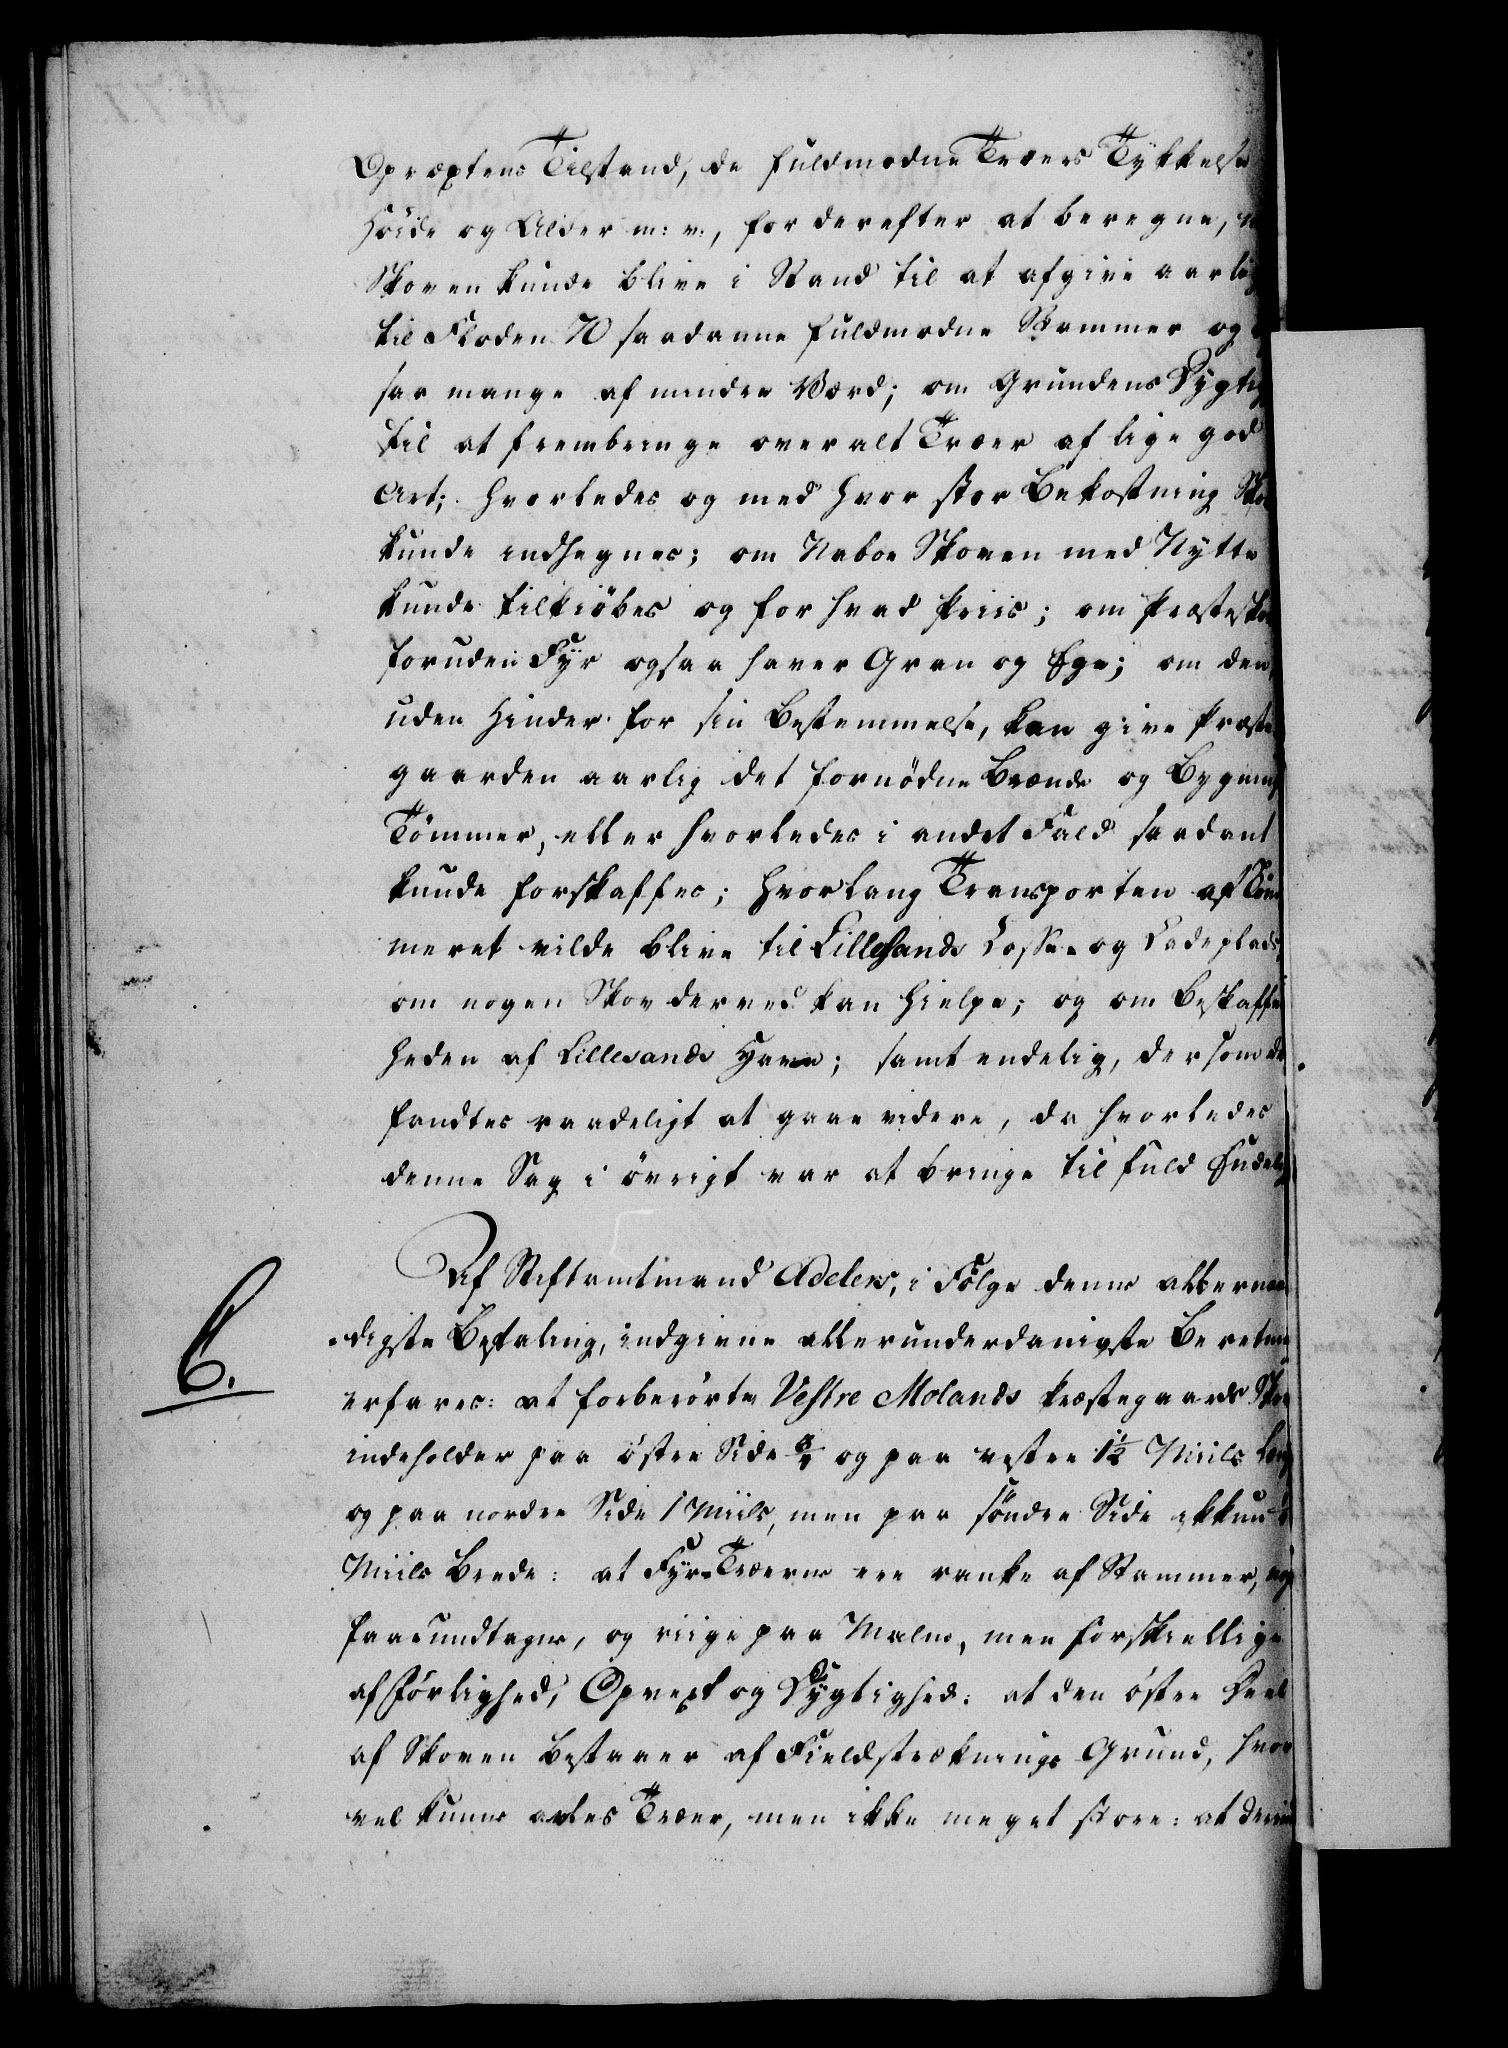 Opvæxtens Tilstand, de fuldmodne Træers Tykkelse
Höide og Alder m: v:, for derefter at beregne,
Skoven kunde blive i Stand til at afgive aarlig
til Floden 70 saadanne fuldmodne Stammer og
saa mange af mindre Værd; om Grundens Dygtig
til at frembringe overalt Træer af lige god
Art; hvorledes og med hvor stor Bekostning Sko
kunde indhegnes; om Naboe Skoven med Nytte
kunde tilkiöbes og for hvad Priis; om Præstesko
foruden Fyr ogsaa haver Gran og Ege; om den,
uden Hinder for sin Bestemmelse, kan give Præste
gaarden aarlig det fornödne Brænde og Bygnings
Tömmer, eller hvorledes i andet Fald saadant
kunde forskaffes; hvorlang Transporten af Töm
meret vilde blive til Lillesands Losse- og Ladeplads,
om nogen Skov derved kan hielpe; og om Beskaffen
heden af Lillesands Havn; samt endelig, dersom det
fandtes raadeligt at gaae videre, da hvorledes
denne Sag i övrigt var at bringe til fuld Endelig
Af Stiftamtmand Adelers, i Fölge denne allernaa
6.
-digste Befaling, indgivne allerunderdanigste Beretning
erfares: at forberörte Vestre Molands Præstegaards Skov
indeholder paa östre Side 3/4 og paa vestre 1 1/2 Miils Læng
og paa nordre Side 1 Miils, men paa söndre Side ikkun
Miils Brede: at Fyr-Træerne ere ranke af Stammer, nogle
faae undtagne, og riige paa Malm, men forskiellige
af Förlighed, Opvext og Dygtighed: at den östre Deel
af Skoven bestaaer af Fieldstræknings Grund, hvor
vel kunne avles Træer, men ikke meget store: at derimod